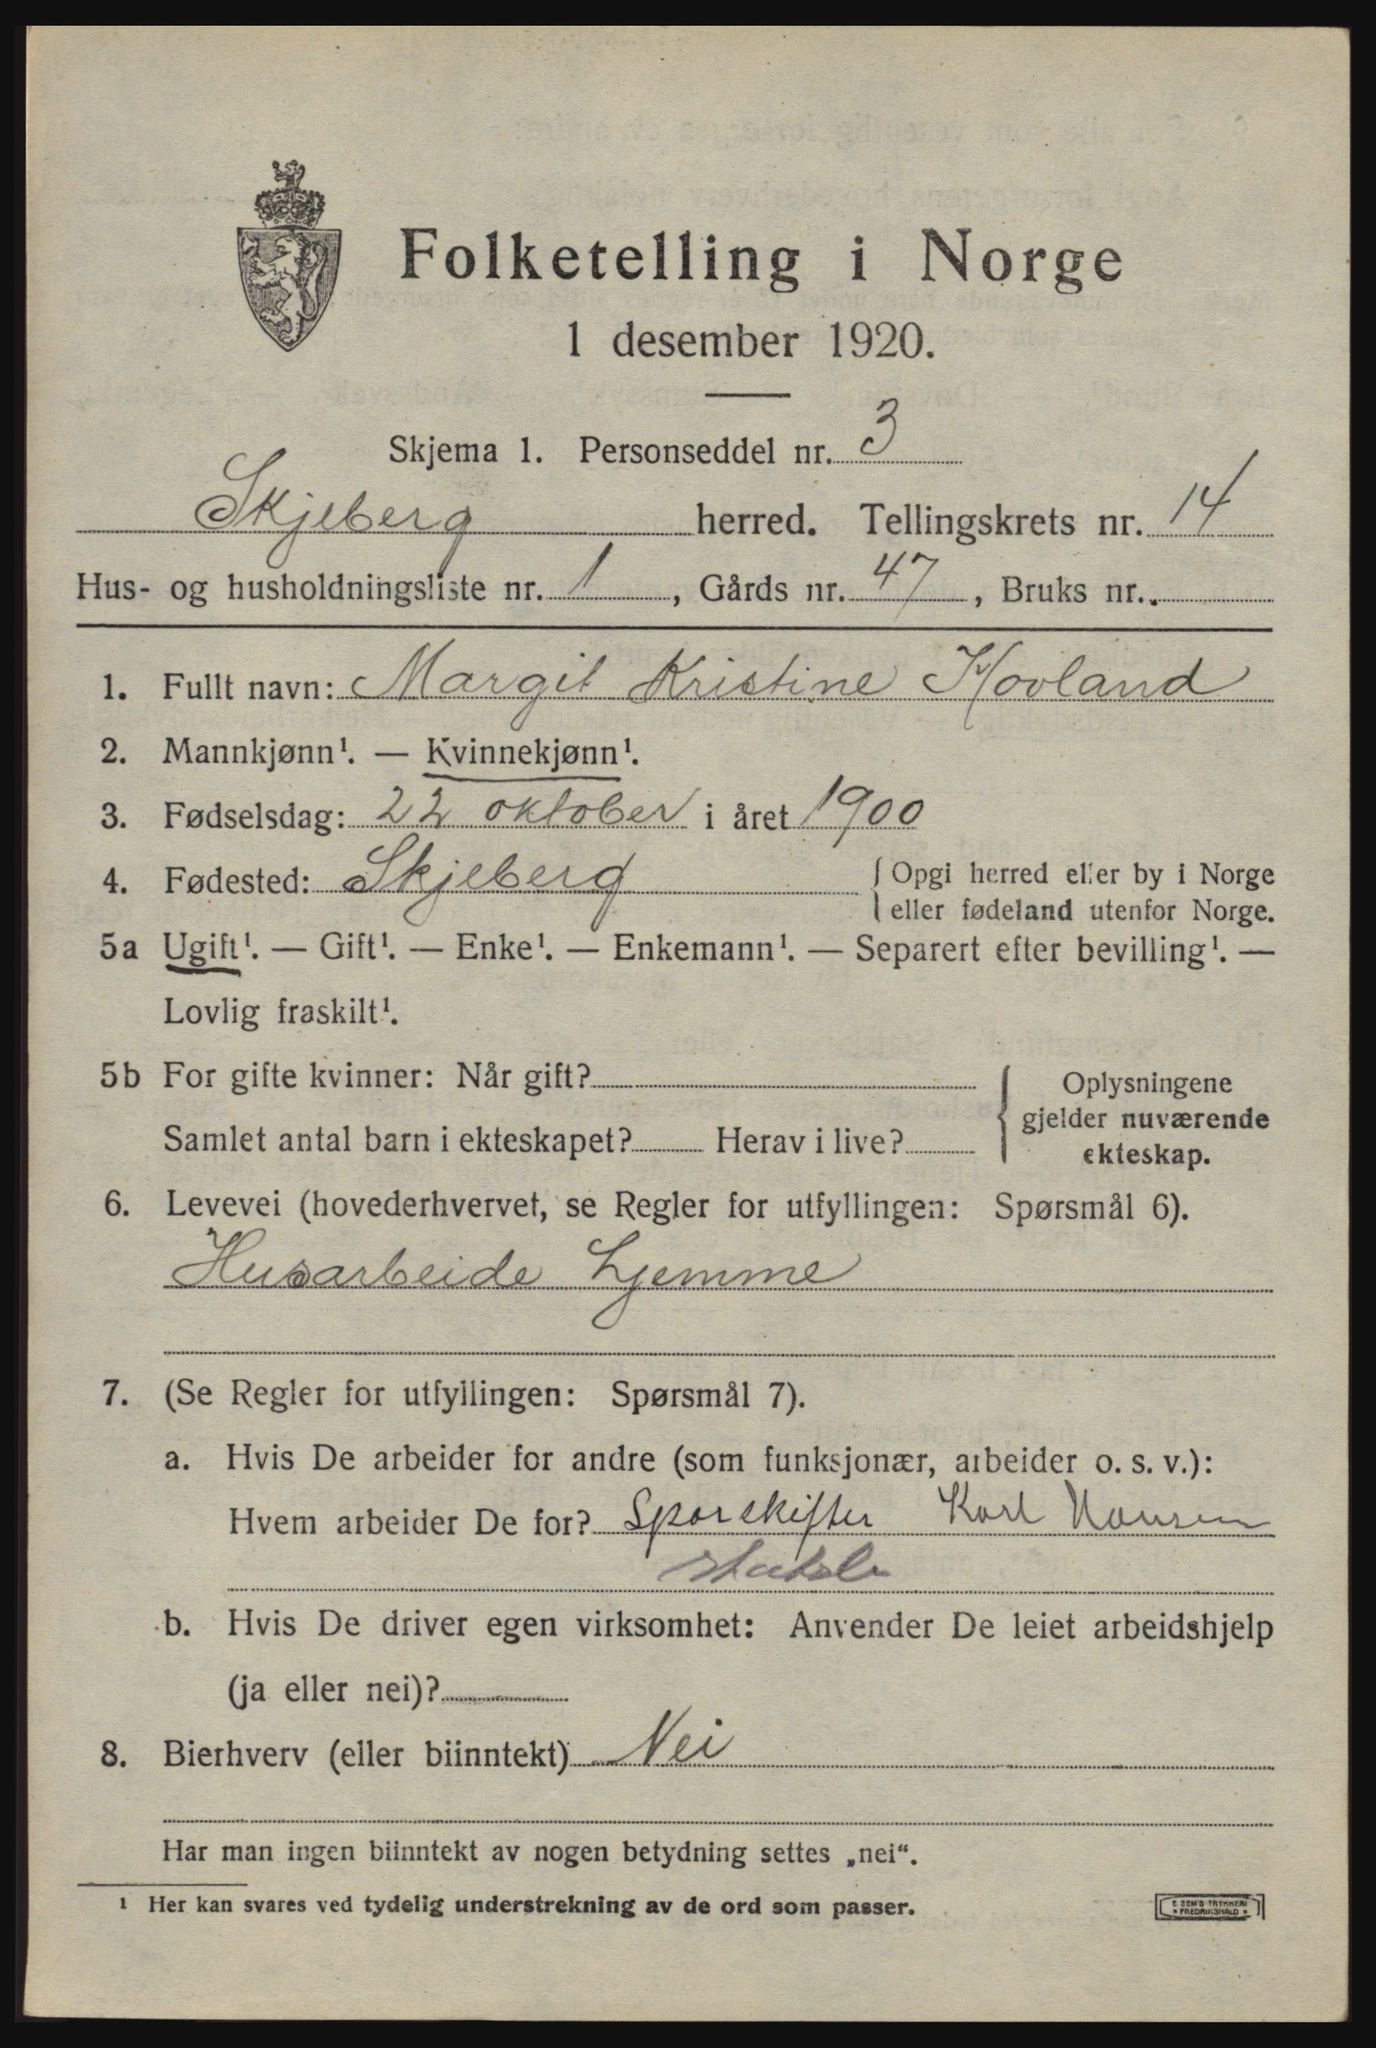 Folketelling i Norge
1 desember 1920.
Skjema 1. Personseddel nr. 3
Skjeberg herred. Tellingskrets nr. 14
Hus- og husholdningsliste nr. 1, Gårds nr. 47, Bruks nr.
1. Fullt navn: Margit Kristine Hovland
2. Mannkjønn¹. — Kvinnekjønn¹.
3. Fødselsdag: 22 oktober i året 1900
4. Fødested: Skjeberg { Opgi herred eller by i Norge
{ eller fødeland utenfor Norge.
5a Ugift¹. — Gift¹. — Enke¹. — Enkemann¹. — Separert efter bevilling¹. —
Lovlig fraskilt¹.
5b For gifte kvinner: Når gift?
Samlet antal barn i ekteskapet? Herav i live?
Oplysningene
gjelder nuværende
ekteskap.
6. Levevei (hovederhvervet, se Regler for utfyllingen: Spørsmål 6).
Husarbeide hjemme
7. (Se Regler for utfyllingen: Spørsmål 7).
a. Hvis De arbeider for andre (som funksjonær, arbeider o. s. v.):
Hvem arbeider De for? Sporskifter Karl Hansen
b. Hvis De driver egen virksomhet: Anvender De leiet arbeidshjelp
(ja eller nei)?
8. Bierhverv (eller biinntekt) Nei
Har man ingen biinntekt av nogen betydning settes „nei“.
¹ Her kan svares ved tydelig understrekning av de ord som passer.
E SEM'S TRYKKERI
FREDRIKSHALD